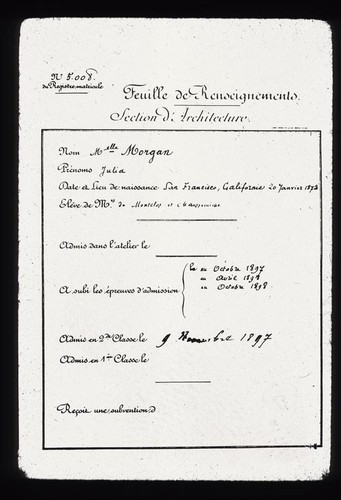 N° 5.008.
du Registre matricule
Feuille de Renseignements.
Section d'Architecture.
Nom Melle Morgan
Prénoms Julia
Date et Lieu de naissance San Francisco, Californie 20 Janvier 1872
Elève de Mrs de Monclos et Chaussemiche
Admis dans l'atelier le
1e en Octobre 1897
A subi les épreuves d'admission en Avril 1898
en Octobre 1898
Admis en 2de Classe le 9 1897
Admis en 1ère Classe le
Reçoit une subvention d